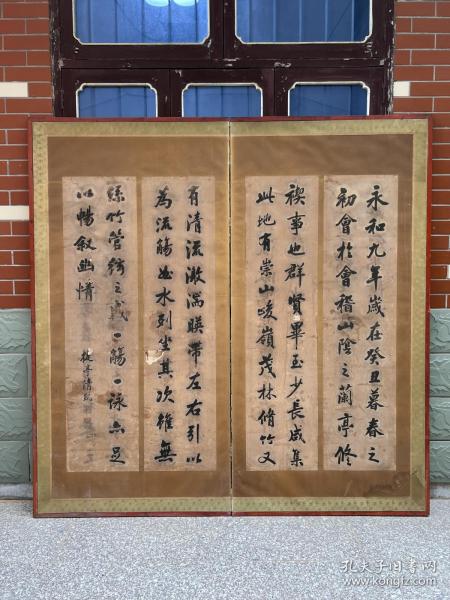 永和九年歲在癸丑暮春之
初會於會稽山陰之蘭亭修
禊事也群賢畢至少長咸集
此地有崇山峻嶺茂林脩竹又
有清流激湍暎帶左右引以
為流觴曲水列坐其次雖無
絲竹管絃之盛一觴一詠亦足
以暢叙幽情
孔夫子旧书网
www.kongfz.com